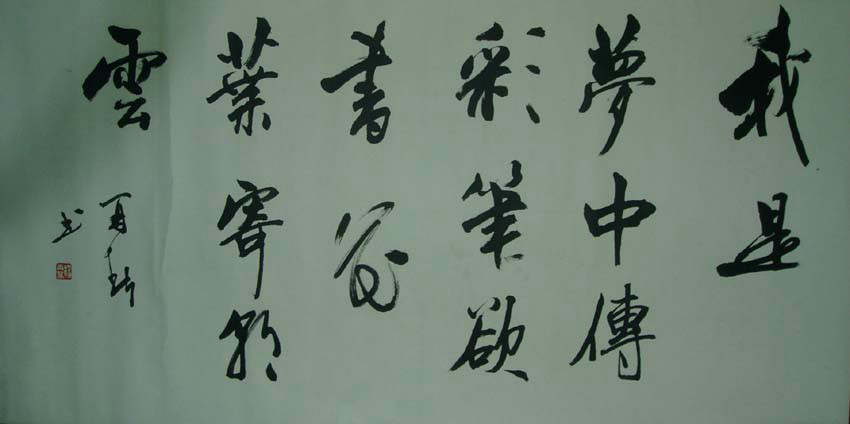 我是
夢中傳
彩筆欲
書花
葉寄朝
雲
书